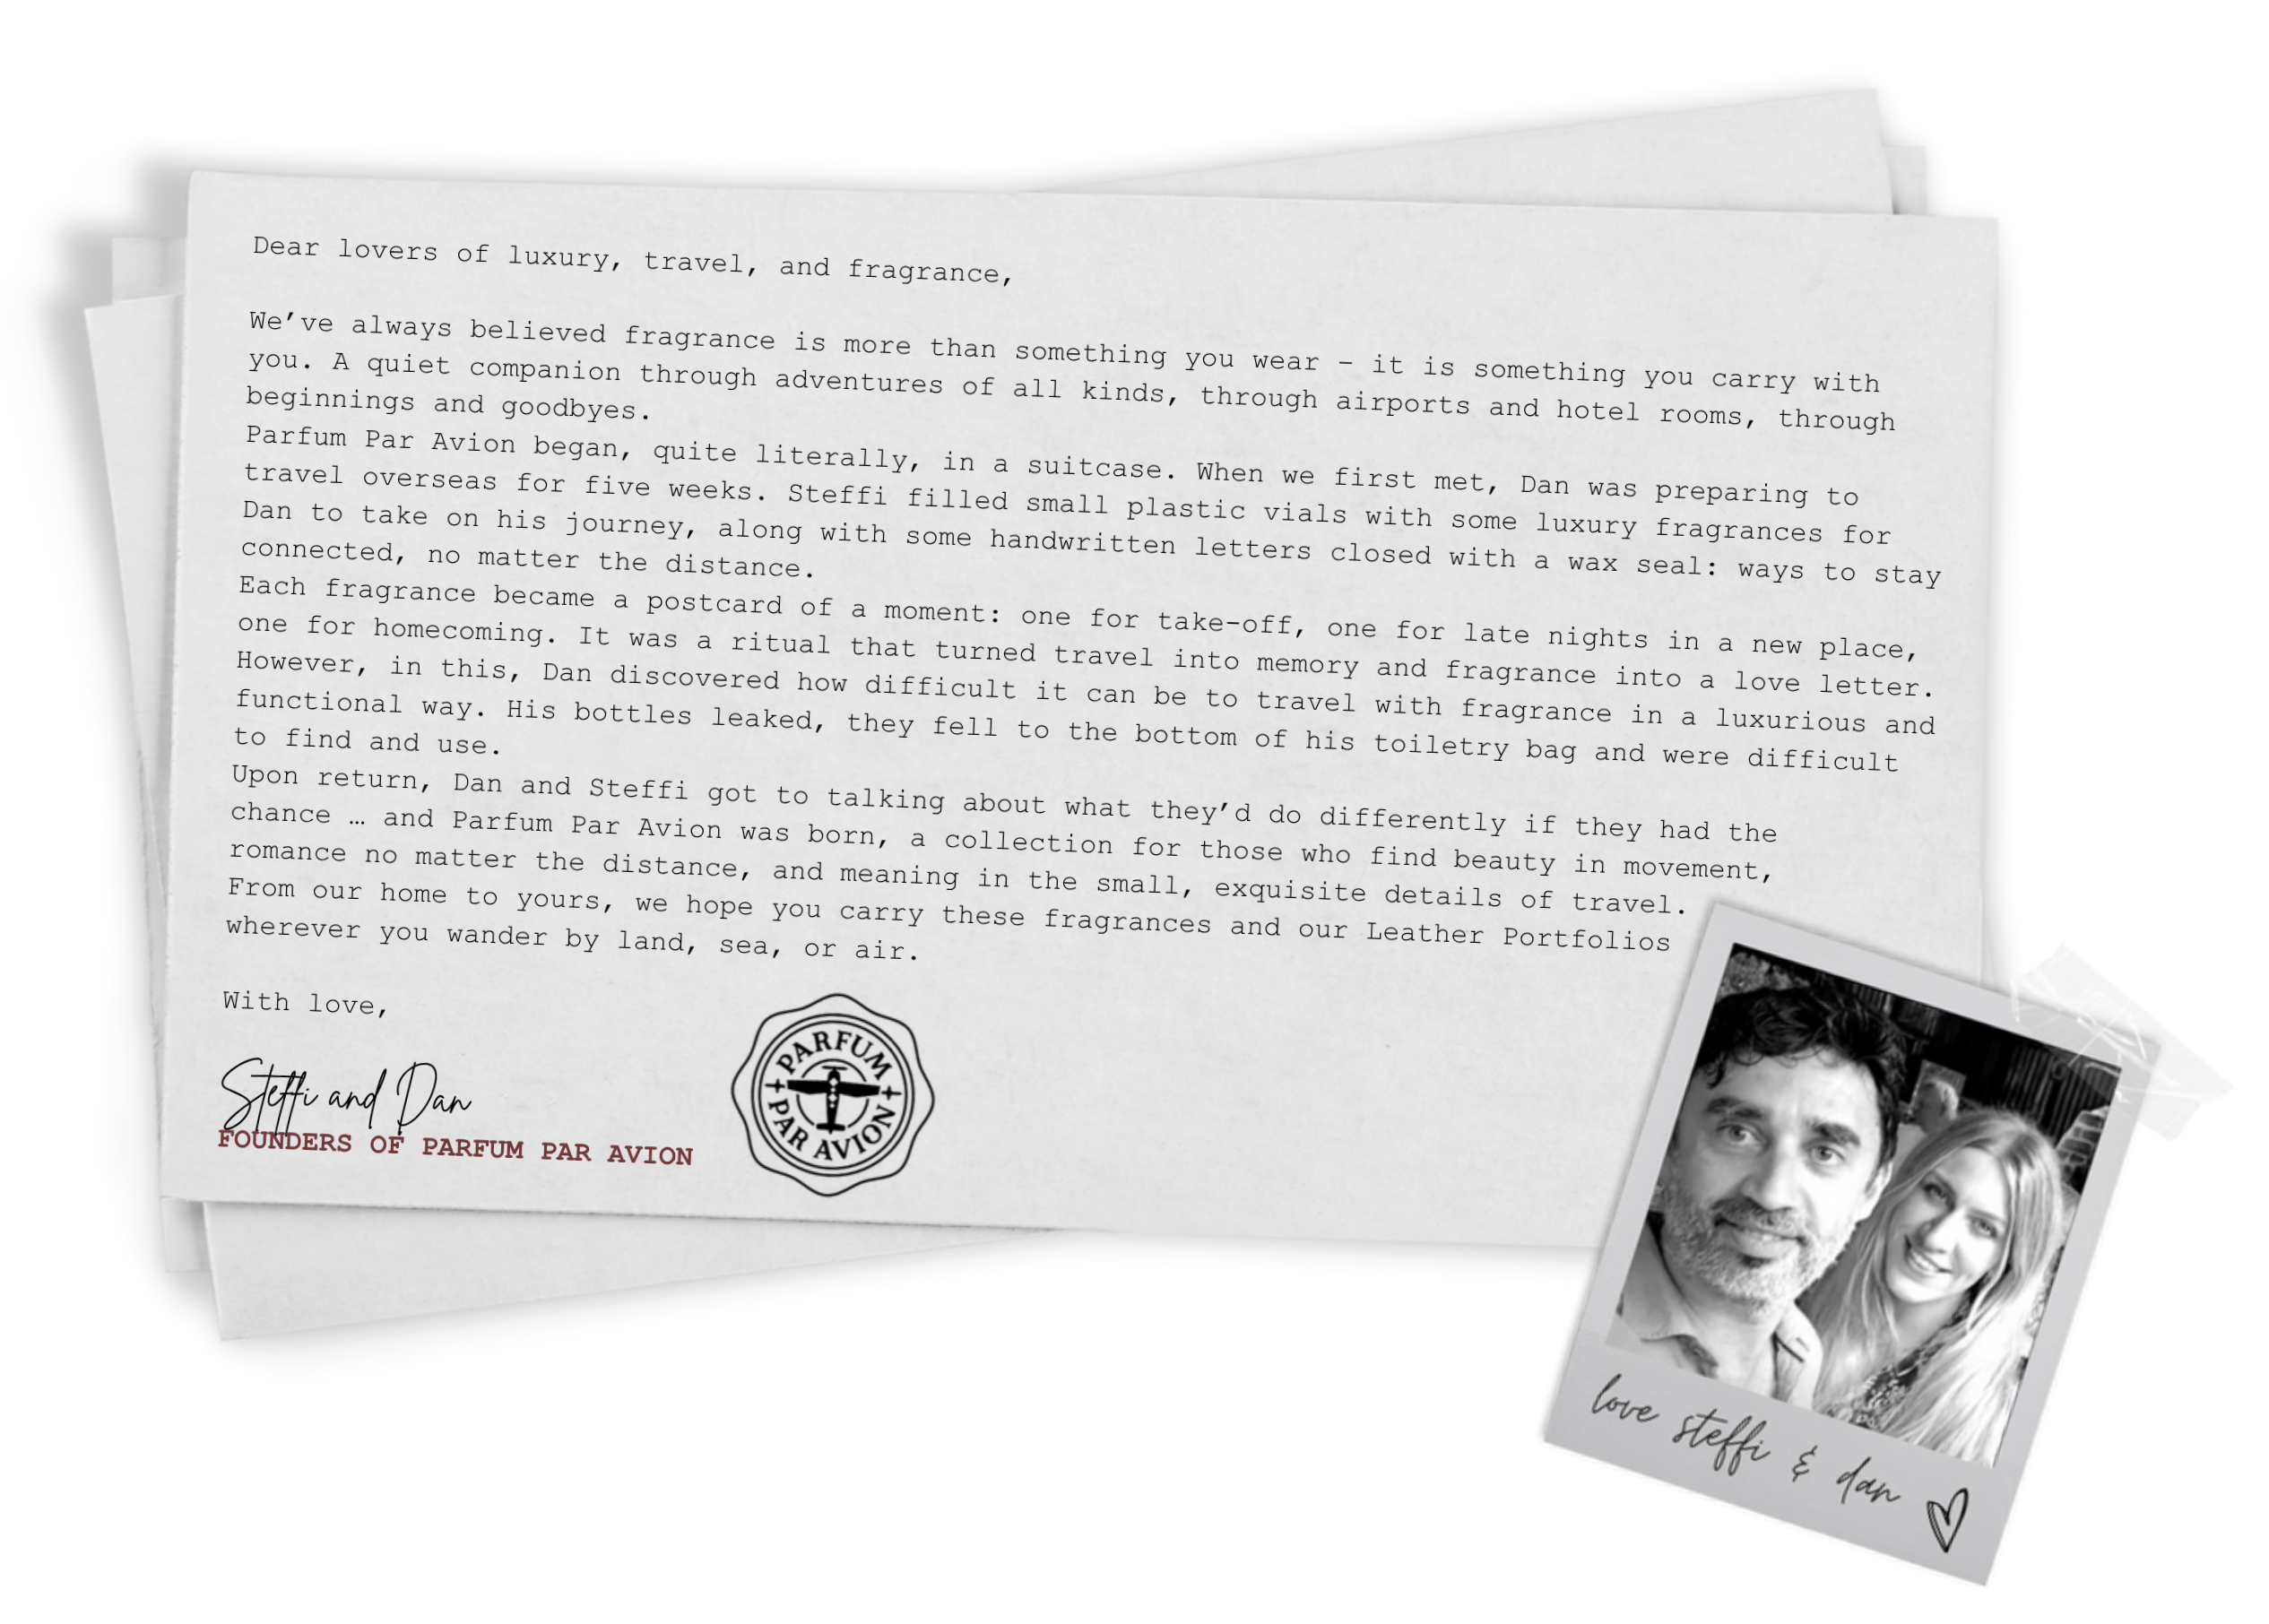 Dear lovers of luxury, travel, and fragrance,
We’ve always believed fragrance is more than something you wear – it is something you carry with
you. A quiet companion through adventures of all kinds, through airports and hotel rooms, through
beginnings and goodbyes.
Parfum Par Avion began, quite literally, in a suitcase. When we first met, Dan was preparing to
travel overseas for five weeks. Steffi filled small plastic vials with some luxury fragrances for
Dan to take on his journey, along with some handwritten letters closed with a wax seal: ways to stay
connected, no matter the distance.
Each fragrance became a postcard of a moment: one for take-off, one for late nights in a new place,
one for homecoming. It was a ritual that turned travel into memory and fragrance into a love letter.
However, in this, Dan discovered how difficult it can be to travel with fragrance in a luxurious and
functional way. His bottles leaked, they fell to the bottom of his toiletry bag and were difficult
to find and use.
Upon return, Dan and Steffi got to talking about what they’d do differently if they had the
chance … and Parfum Par Avion was born, a collection for those who find beauty in movement,
romance no matter the distance, and meaning in the small, exquisite details of travel.
From our home to yours, we hope you carry these fragrances and our Leather Portfolios
wherever you wander by land, sea, or air.
With love,
Steffi and Dan
FOUNDERS OF PARFUM PAR AVION
PARFUM
PAR AVION
love steffi & dan